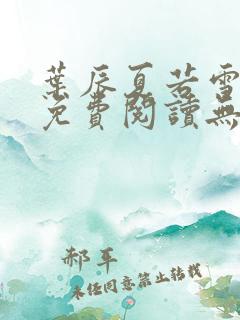 葉辰夏若雪
免費閱讀無
郝平
未經同意禁止轉載